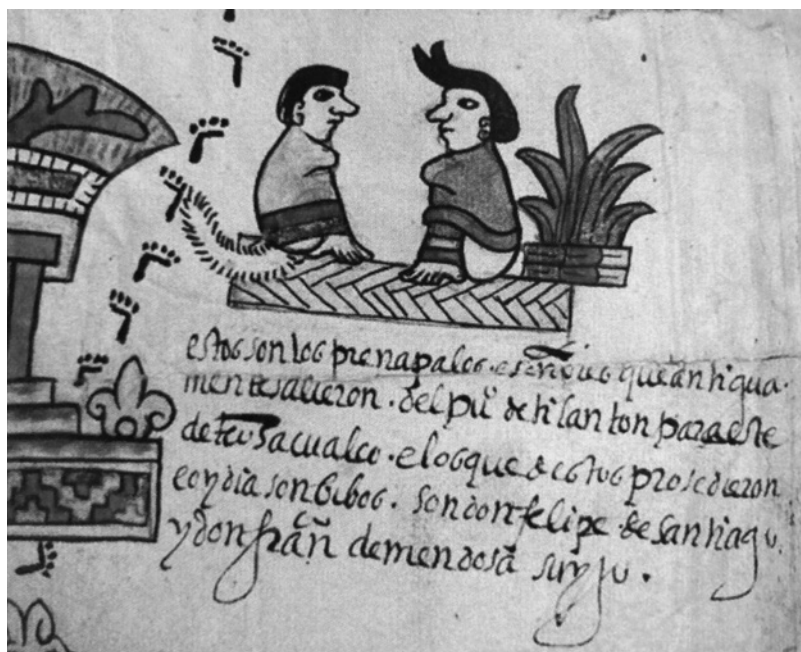 estos son los prençipales e señores que antigua
mente salieron . del pu° de tilanton para este
de teosacualco . e los que destos prosedieron
e oy dia son bibos . son don felipe de santiago .
y don fran^co de mendosa su yjo .